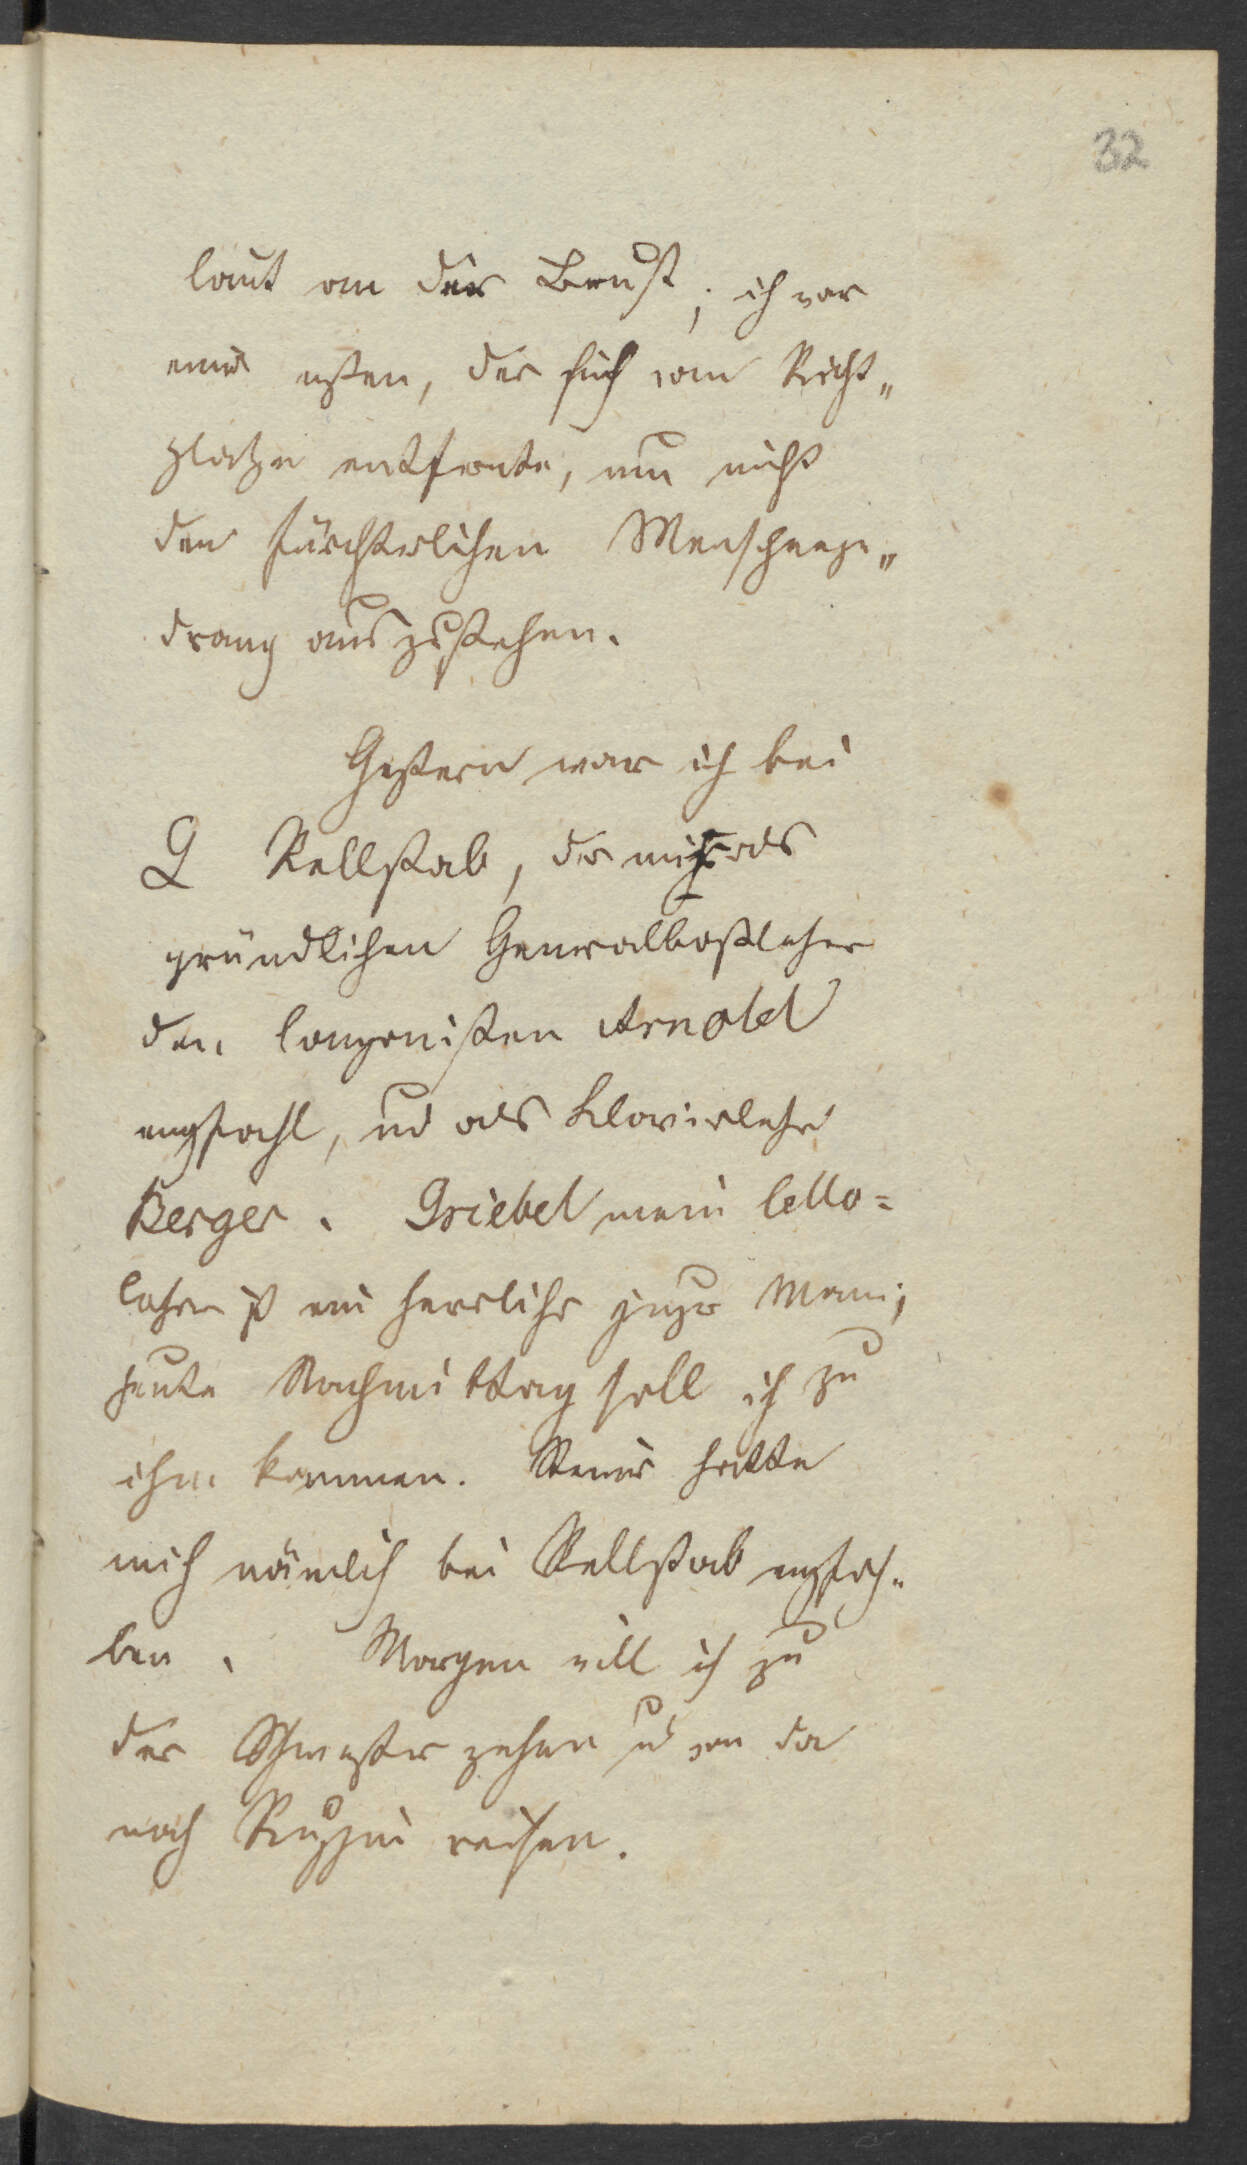 32
laut an der Brust; ich war
einer ersten, der sich vom Richt„
platze entfernte, um nicht
den fürchterlichen Menschenge„
drang auszustehen.
Gestern war ich bei
L Rellstab, der mir als
gründlichen Generalbaßlehrer
den Componisten Arnold
empfahl, und als Klavierlehrer
Berger. Griebel mein Cello=
lehrer ist ein herrlicher junger Mann;
heute Nachmittag soll ich zu
ihm kommen. hatte
mich nämlich bei Rellstab empfoh„
len. Morgen will ich zu
der Schwester gehen u von da
nach reisen.